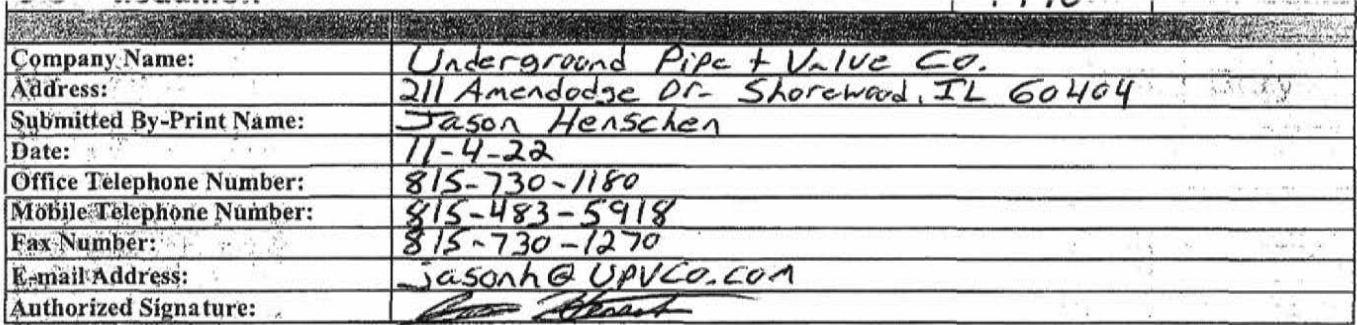 Company Name: Underground Pipe + Valve Co.
Address: 211 Amendodge Dr- Shorewood, IL 60404
Submitted By-Print Name: Jason Henschen
Date: 11-4-22
Office Telephone Number: 815-730-1180
Mobile Telephone Number: 815-483-5918
Fax Number: 815-730-1270
E-mail Address: jasonh@UPVCo.com
Authorized Signature: